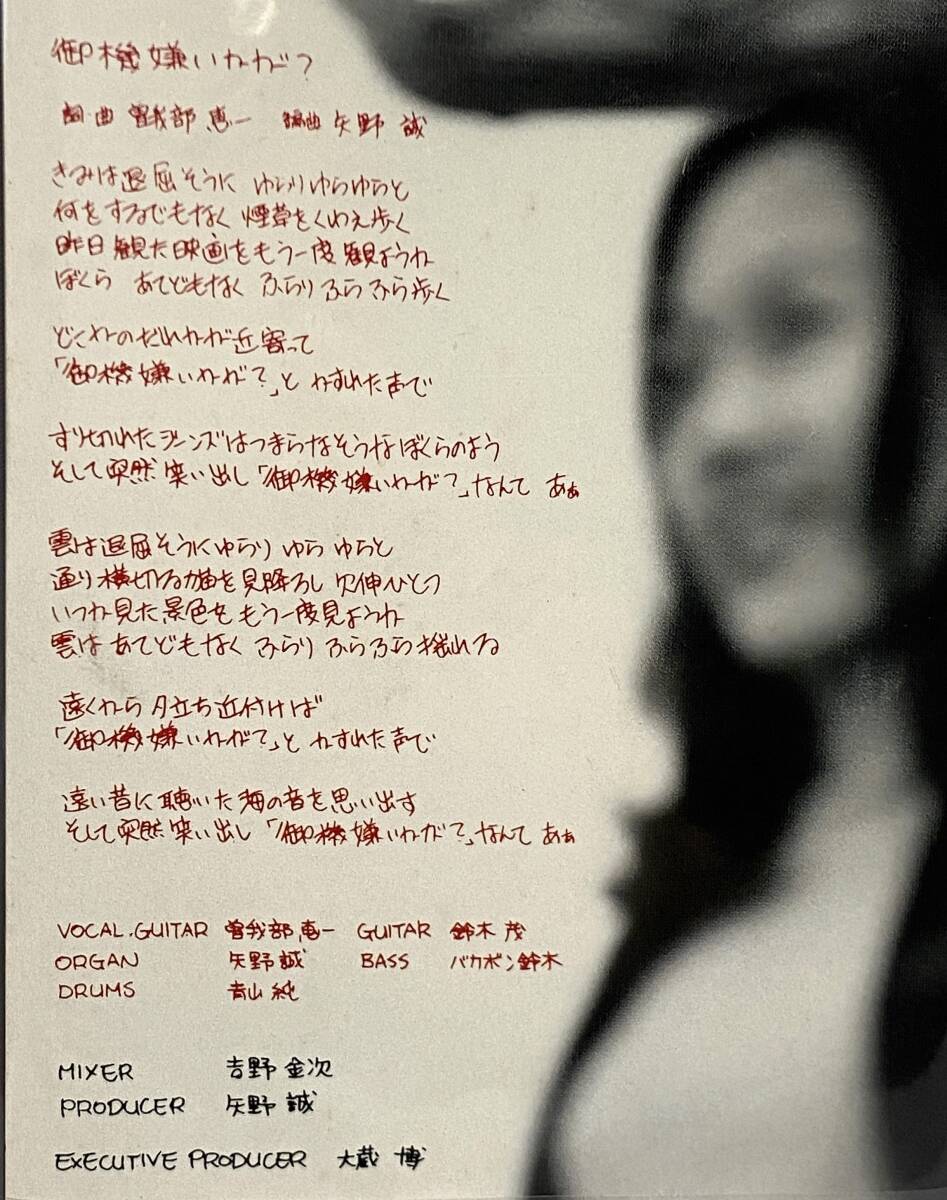 御機嫌いかが?
詞・曲 曽我部恵一 編曲 矢野 誠
きみは退屈そうに ゆらりゆらゆらと
何をするでもなく 煙草をくわえ歩く
昨日観た映画をもう一度観ようか
ぼくら あてどもなく ふらり ふらふら歩く
どこかのだれかが近寄って
「御機嫌いかが?」と かすれた声で
すり切れたジーンズはつまらなそうなぼくらのよう
そして突然笑い出し「御機嫌いかが?」なんて あぁ
雲は退屈そうにゆらり ゆら ゆらと
通り横切る猫を見降ろし 欠伸ひとつ
いつか見た景色を もう一度見ようか
雲は あてどもなく ふらり ふらふら揺れる
遠くから 夕立ち近付けば
「御機嫌いかが?」と かすれた声で
遠い昔に聴いた海の音を思い出す
そして突然笑い出し「御機嫌いかが?」なんて あぁ
VOCAL.GUITAR 曽我部恵一 GUITAR 鈴木 茂
ORGAN 矢野誠 BASS バカボン鈴木
DRUMS 青山 純
MIXER 吉野 金次
PRODUCER 矢野 誠
EXECUTIVE PRODUCER 大蔵 博